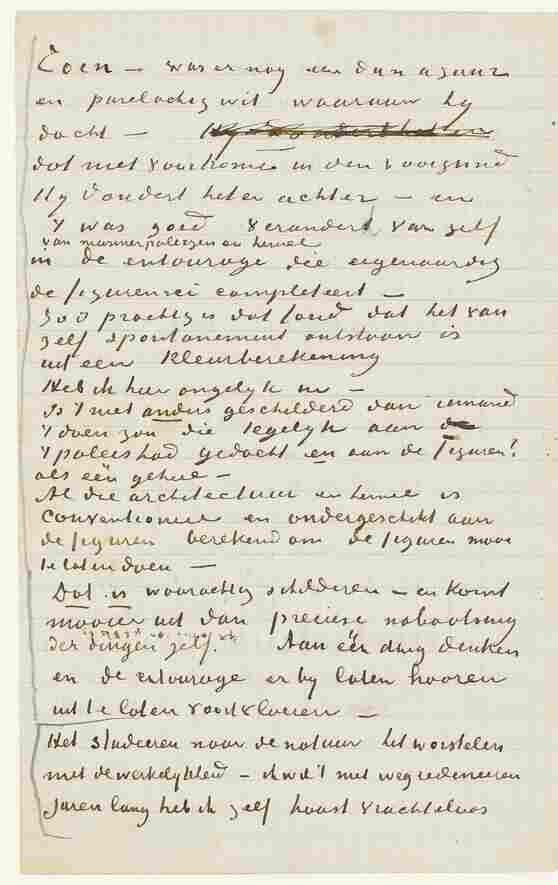 Toen – was er nog een dun azuur
en parelachtig wit waaraan hij
dacht –
dat niet voorkomt in den voorgrond
Hij dondert het er achter – en
't was goed verandert van zelf
van marmerpaleizen en hemel
in de entourage die eigenaardig
de figurenrei completeert –
Zoo prachtig is dat fond dat het van
zelf spontanement ontstaan is
uit een kleurberekening
Heb ik hier ongelijk in –
Is 't niet anders geschilderd dan iemand
't doen zou die tegelijk aan
't paleis had gedacht en aan de figuren!
als één geheel –
Al die architectuur en hemel is
conventioneel en ondergeschikt aan
de figuren berekend om de figuren mooi
te laten doen –
Dat is waarachtig schilderen – en komt
mooier uit dan preciese nabootsing
der dingen zelf. Aan één ding denken
en de entourage er bij laten hooren
uit te laten voortvloeien –
Het studeeren naar de natuur het worstelen
met de werkelijkheid – ik wil 't niet wegredeneeren
Jaren lang heb ik zelf haast vruchteloos